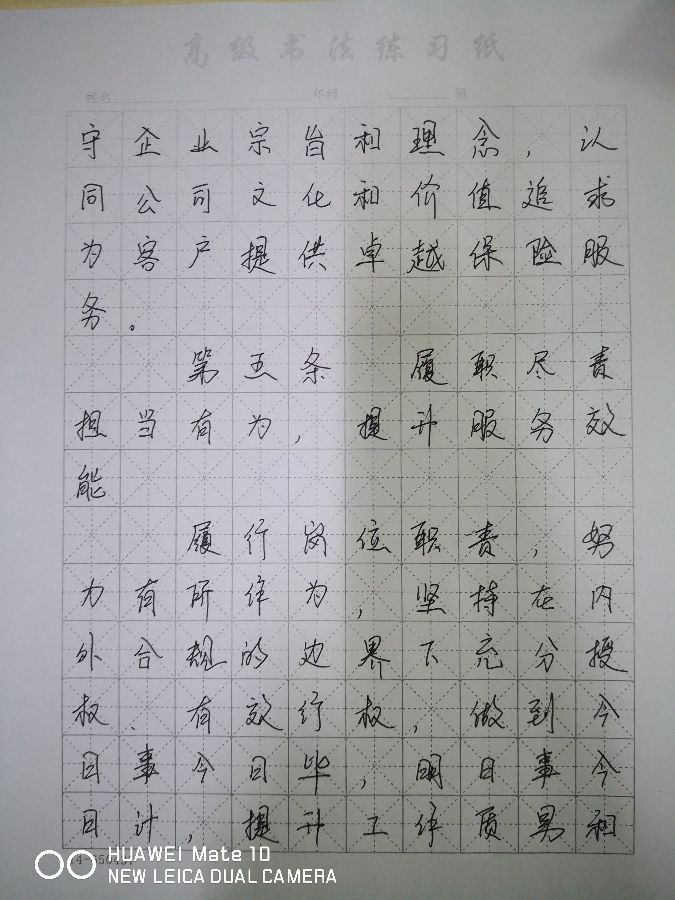 高级书法练习纸
姓名 年级 班
守企业宗旨和理念，认
同公司文化和价值追求
为客户提供卓越保险服
务。
第五条 履职尽责
担当有为，提升服务效
能
履行岗位职责，努
力有所作为，坚持在内
外合规的边界下充分授
权、有效行权，做到今
日事今日毕，明日事今
日计，提升工作质男和
HUAWEI Mate 10
NEW LEICA DUAL CAMERA